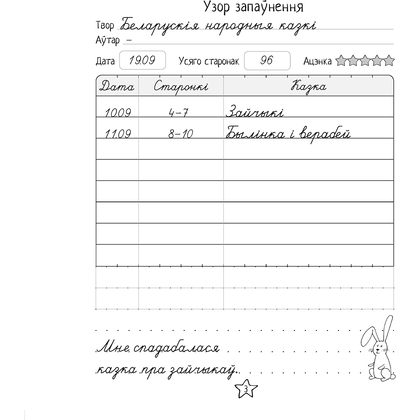 Узор запаўнення
Твор Беларускія народныя казкі
Аўтар –
Дата 19.09 Усяго старонак 96 Ацэнка
Дата Старонкі Казка
10.09 4–7 Зайчыкі
11.09 8–10 Былінка і верабей
Мне спадабалася
казка пра зайчыкаў.
3